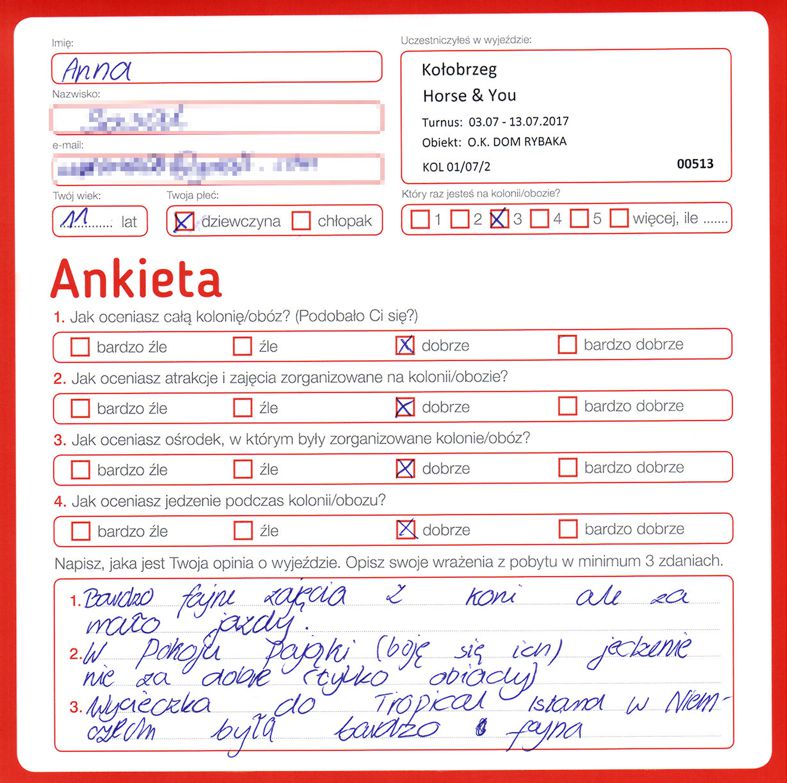 Imię:
Anna
Uczestniczyłeś w wyjeździe:
Kołobrzeg
Horse & You
Turnus: 03.07 - 13.07.2017
Obiekt: O.K. DOM RYBAKA
KOL 01/07/2
00513
Nazwisko:
e-mail:
Twój wiek:
11 lat
Twoja płeć:
dziewczyna chłopak
Który raz jesteś na kolonii/obozie?
1 2 3 4 5 więcej, ile .......
Ankieta
1. Jak oceniasz całą kolonię/obóz? (Podobało Ci się?)
bardzo źle źle dobrze bardzo dobrze
2. Jak oceniasz atrakcje i zajęcia zorganizowane na kolonii/obozie?
bardzo źle źle dobrze bardzo dobrze
3. Jak oceniasz ośrodek, w którym były zorganizowane kolonie/obóz?
bardzo źle źle dobrze bardzo dobrze
4. Jak oceniasz jedzenie podczas kolonii/obozu?
bardzo źle źle dobrze bardzo dobrze
Napisz, jaka jest Twoja opinia o wyjeździe. Opisz swoje wrażenia z pobytu w minimum 3 zdaniach.
1. Bardzo fajne zajęcia z koni ale za
mało jazdy.
2. W Pokoju Pająki (boję się ich) jedzenie
nie za dobre (tylko obiady)
3. Wycieczka do Tropical Island w Niem-
czech była bardzo fajna